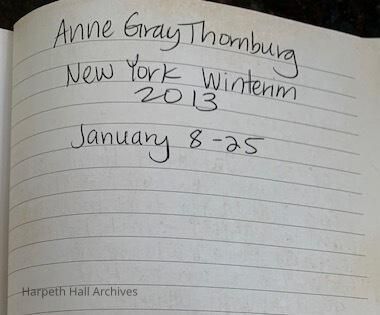 Anne Gray Thornburg
New York Winterim
2013
January 8-25
Harpeth Hall Archives